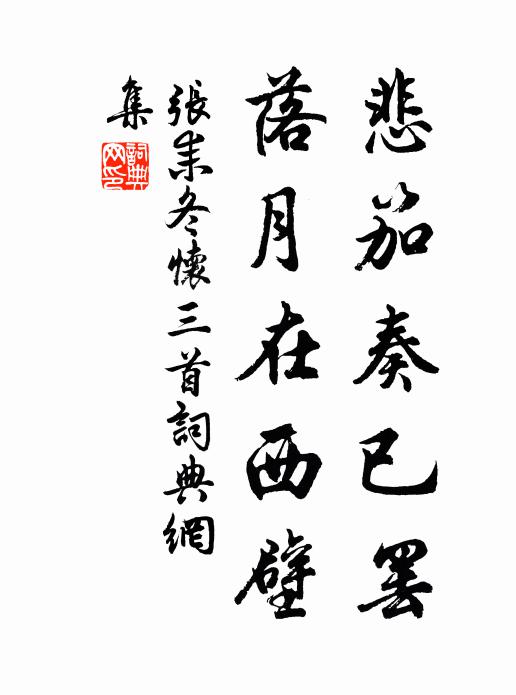 悲笳奏已罢
落月在西壁
張耒冬懷三首詞典網
集
詞典
网印